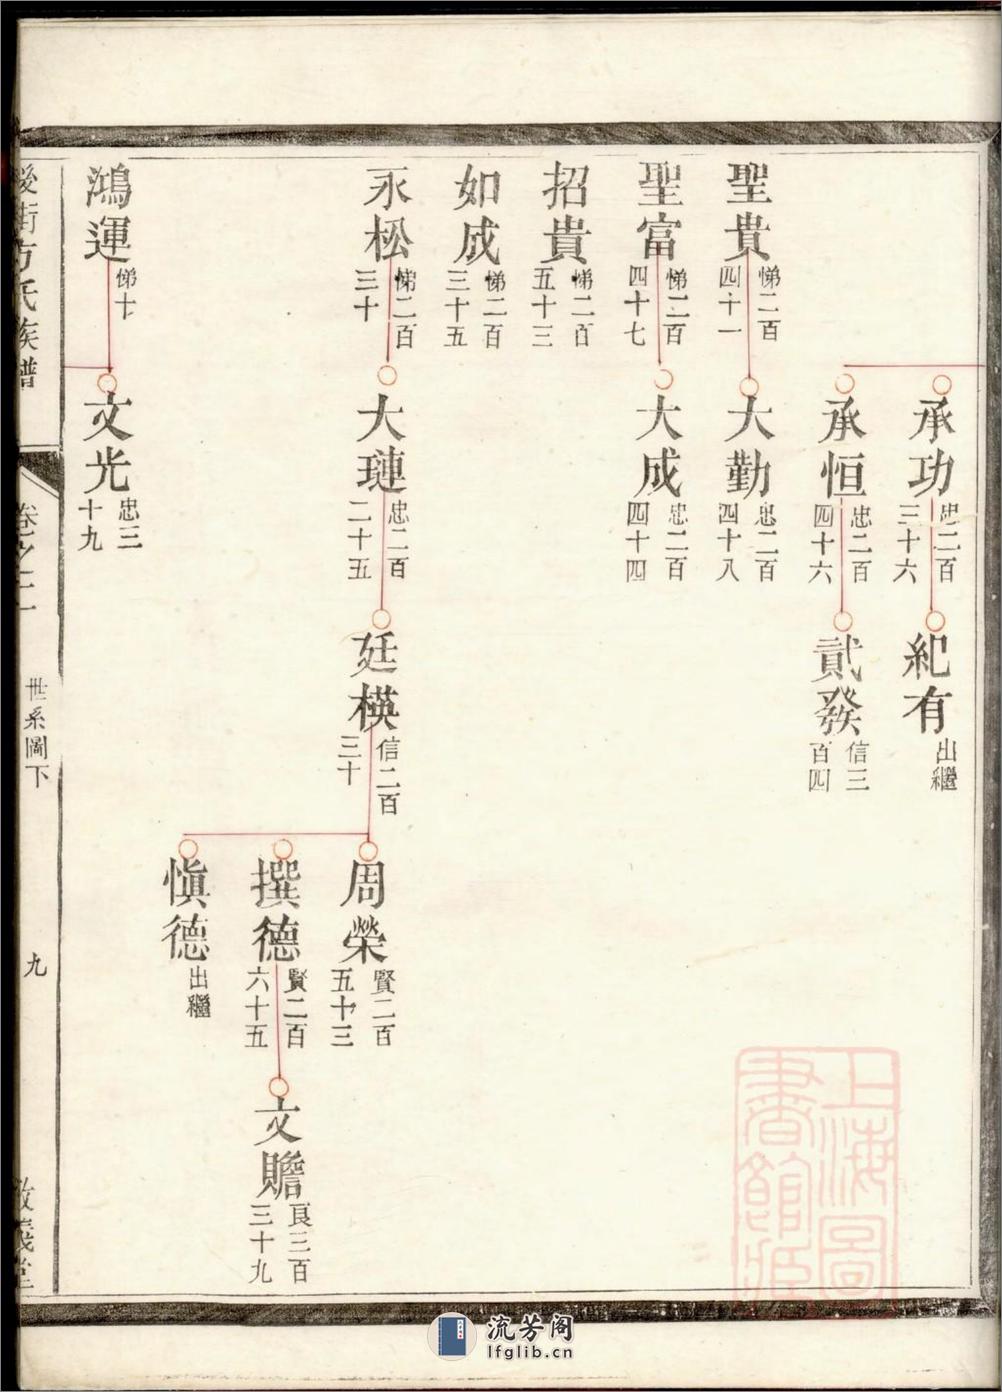 承功
忠二百
三十六
紀有
出繼
承恒
忠二百
四十六
貳發
信三
百四
聖貴
悌二百
四十一
大勤
忠二百
四十八
聖富
悌二百
四十七
大成
忠二百
四十四
招貴
悌二百
五十三
如成
悌二百
三十五
永松
悌二百
三十
大璉
忠二百
二十五
廷橫
信二百
三十
周榮
賢二百
五十三
撰德
賢二百
六十五
文贍
良三百
三十九
愼德
出繼
鴻運
悌十
文光
忠三
十九
後街方氏族譜
卷之二
世系圖下
九
敦義堂
上海圖
書館藏
流芳阁
lfglib.cn